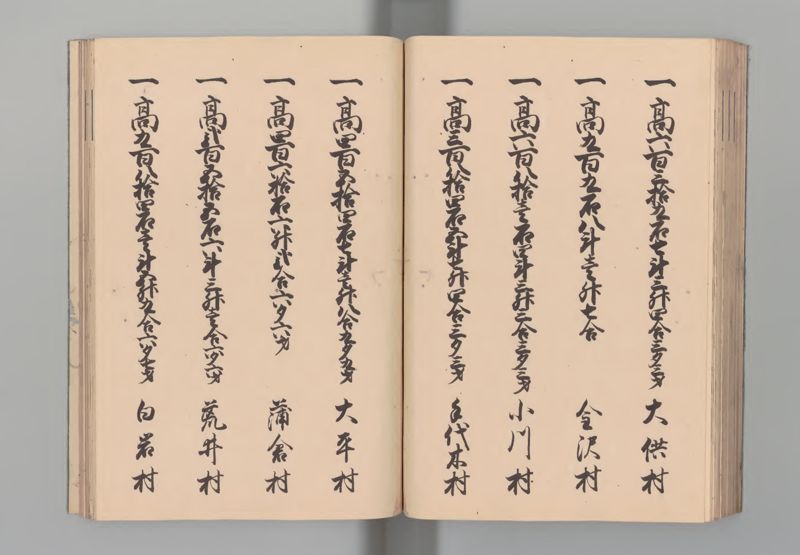 一高六百三拾九石七斗三升四合三夕三才 大供村
一高九百九石八斗壱升七合 金沢村
一高六百八拾壱石四斗三升二合三夕三才 小川村
一高三百八拾四石五斗七升四合三夕三才 手代木村
一高四百五拾四石七斗壱升八合五夕五才 大平村
一高四百六拾石六升弐合六夕六才 蒲倉村
一高弐百五拾五石六斗三升壱合六夕六才 荒井村
一高九百八拾四石壱斗五升九合六夕七才 白岩村